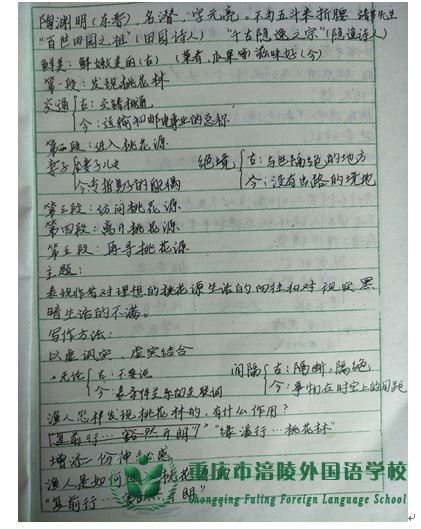 陶渊明(东晋),名潜,字元亮。不为五斗米折腰 靖节先生
"百世田园之祖"(田园诗人) "千古隐逸之宗"(隐逸诗人)
鲜美:鲜嫩美丽(古) (菜肴,瓜果等)滋味好(今)
第一段:发现桃花林
交通 古:交错相通,
今:运输和邮电事业的总称
第二段:进入桃花源
妻子 古:妻子儿女 绝境 古:与世隔绝的地方
今:指男子的配偶 今:没有出路的境地
第三段:访问桃花源
第四段:离开桃花源
第五段:再寻桃花源
主题:
表现作者对理想的桃花源生活的向往和对现实黑
暗生活的不满。
写作方法:
以虚讽实,虚实结合
无论 古:不要说 间隔 古:隔断,隔绝
今:表条件关系的关联词 今:事物在时空上的间距
渔人怎样发现桃花林的,有什么作用?
"复前行…豁然开朗" "缘溪行…桃花林"
增添一份神秘感
渔人是如何进 桃花
"复前行… 开朗"
重庆市涪陵外国语学校
Chongqing Fuling Foreign Language School